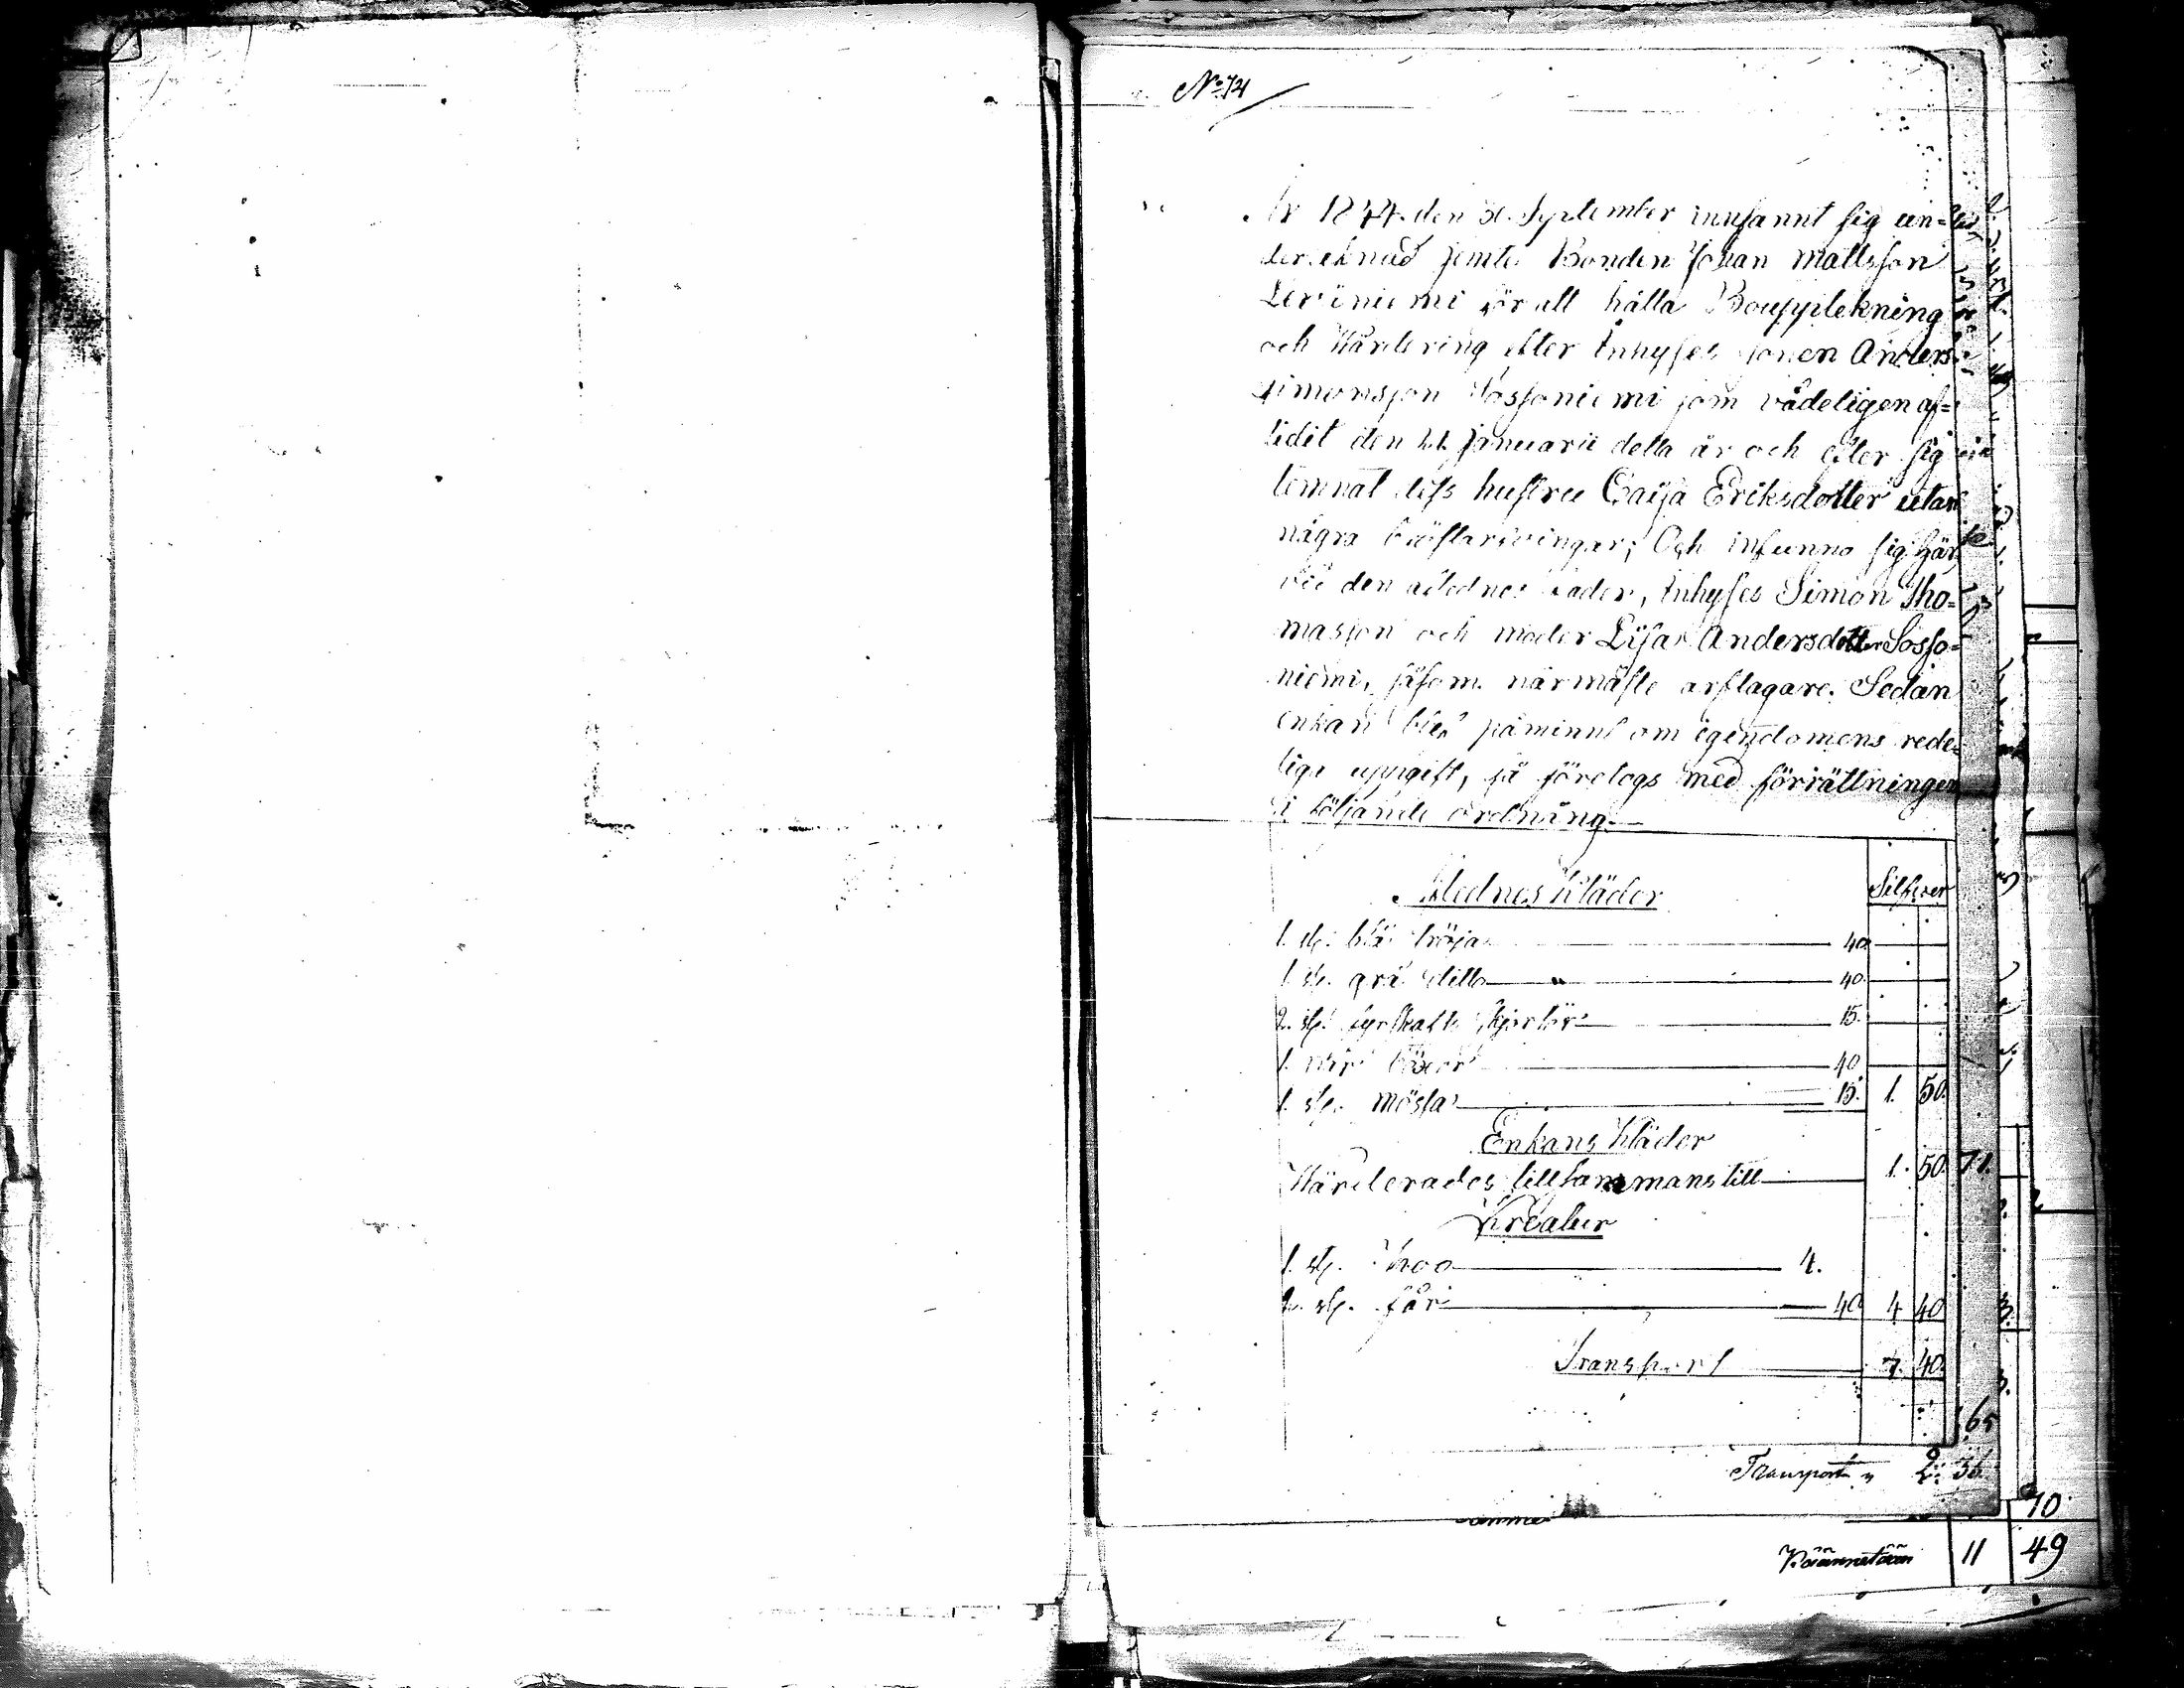 No 74
År 1844 den September innfannt sig un=
dertecknad jemte Bonden Johan Mattsson
Leviniemi för att hålla Boupptekning
och Wärdering efter Inhyses sonen Anders
Simonsson Sossoniemi som vådeligen af=
lidit den 21 Januarii detta år och efter sig
lemnat dess hustru Caija Eriksdotter utan
några bröstarvingar; Och infunno sig här
vid den aflednes fader, Inhyses Simon Tho=
masson och moder Lisa Andersdotter Sosso=
niemi, såsom närmaste arftagare. Sedan
enkan blef påmint om egendomens rede=
liga uppgift, så företogs med förrättningen
i följande ordning.
Aflednes Kläder Silfwer
1. st. blå tröja 40
1 st. grå ditto 40.
2. st. skjortor 15.
1. par böxor 40
1. st. mössa 15. 1. 50.
Enkans Kläder
Wärderades tillsammans till 1. 50.
Kreatur
1. st. Koo 4.
2. st. får 40 4 40
Transport 7. 40.
71.
65
Transport 2: 36
10
Käännetään 11 49